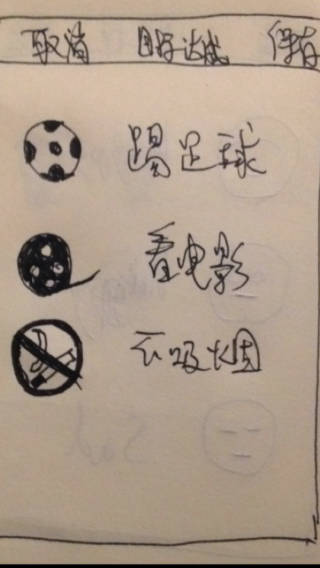 取消 目标达成 保存
踢足球
看电影
不吸烟